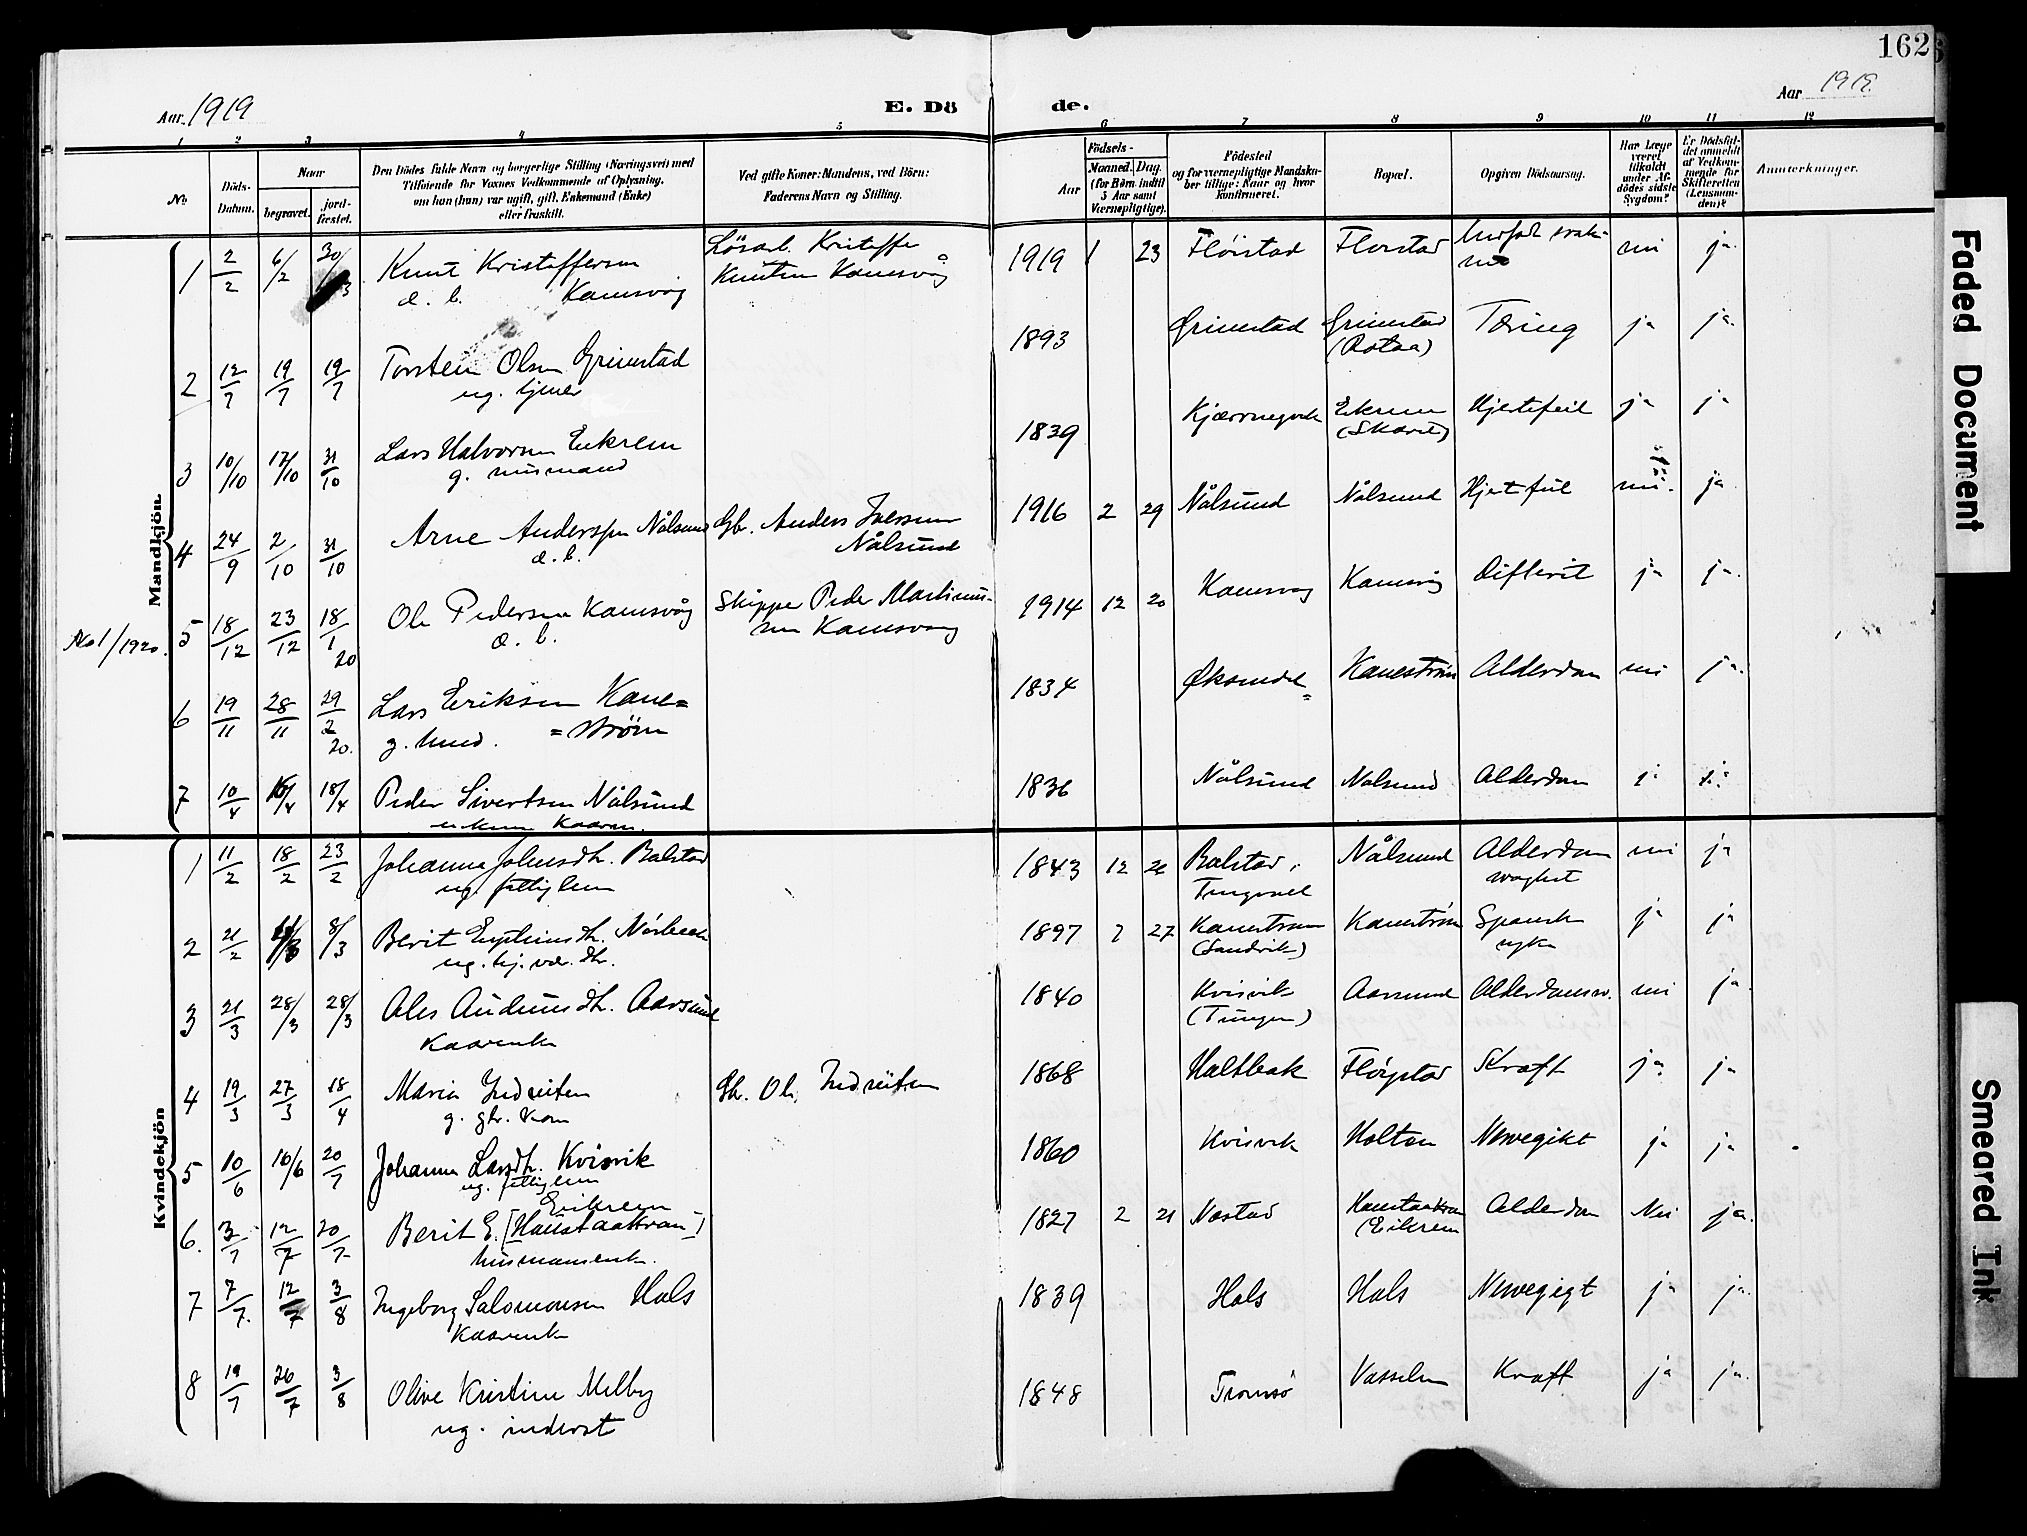 162
Aar 1919
E. Dö
de.
Aar 1919.
1 2 3 4 5 6 7 8 9 10 11 12
No.
Döds-
Datum.
Naar
begravet.
jord-
fæstet.
Den Dödes fulde Navn og borgerlige Stilling (Næringsvei) med
Tilföiende for Voxnes Vedkommende af Oplysning,
om han (hun) var ugift, gift, Enkemand (Enke)
eller fraskilt.
Ved gifte Koner: Mandens, ved Börn:
Faderens Navn og Stilling.
Födsels-
Aar
Maaned.
Dag.
(for Börn indtil
5 Aar samt
Værnepligtige).
Födested
og for værnepligtige Mandska-
ber tillige: Naar og hvor
konfirmeret.
Bopæl.
Opgiven Dödsaarsag.
Har Læge
været
tilkaldt
under Af-
dödes sidste
Sygdom?
Er Dödsfal-
det anmeldt
af Vedkom-
mende for
Skifteretten
(Lensman-
den)?
Anmærkninger.
Mandkjön
1 2/2 6/2 30/3 Knut Kristoffersen Kristoffer 1919 1 23 Fløistad Fløistad nei ja.
d. b. Kamsvåg Knutsen Kamsvåg
2 12/7 19/7 19/7 Torsten Olsen Grimstad 1893 Grimstad Grimstad Tæring ja ja.
ug. tjener
3 10/10 17/10 31/10 Lars Halvorsen Eikrem 1839 Eikrem Hjertefeil ja ja
g. husmand
4 24/9 2/10 31/10 Arne Anderssen Nålsund Gbr. Anders Iversen 1916 2 29 Nålsund Nålsund Hjertefeil nei. ja
d. b. Nålsund
No 1/1920. 5 18/12 23/12 18/1 20 Ole Pedersen Kamsvåg Skipper Peder Martinus- 1914 12 20 Kamsvåg Kamsvåg Difterit ja ja.
d. b. sen Kamsvåg
6 19/11 28/11 29/2 20. Lars Eriksen Kane= 1834 Øksendal Kanestrøm Alderdom nei ja.
=strøm
7 10/4 16/4 18/4 Peder Sivertsen Nålsund 1836 Nålsund Nålsund Alderdom
Kvindekjön
1 11/2 18/2 23/2 Johanna Johnsdtr. Balstad 1843 12 26 Balstad i Nålsund Alderdom nei ja
ug. fattiglem Tingvold
2 21/2 8/3 Berit 1897 7 27 Kanestrøm Kanestrøm Spansk ja ja
(Sandvik) syke
3 21/3 28/3 28/3 Ales Audunsdtr. Aarsund 1840 Kvisvik Aarsund nei ja.
Kaarenke
4 19/3 27/3 18/4 Maria Indreiten Gbr. Ole Indreiten 1868 Haltbak Fløystad Kræft ja. ja
g. gbr. kone
5 10/6 16/6 20/7 Johanna Larsdtr. Kvisvik 1860 Kvisvik Holten Nervegikt ja ja
ug. fattiglem
6. 3/7 12/7 20/7 Berit E. Eikrem 1827 2 21 Næstad Alderdom Nei ja.
husmannsenke. (Eikrem
7 7/7 12/7 3/8 Ingeborg Salomonsen Hals 1839 Hals Hals Nervegigt ja ja.
Kaarenke
8 19/7 26/7 3/8 Olive Kristine Melby 1848 Tromsø Kræft ja ja.
ug. inderst
Faded Document
Smeared Ink